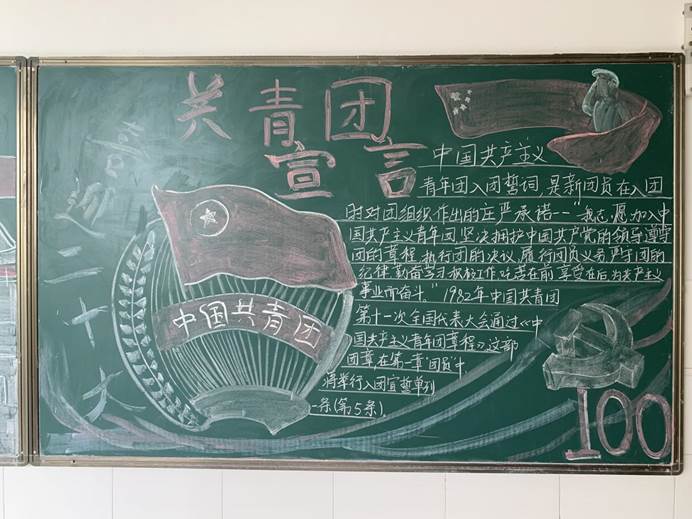 共青团
宣言
喜迎二十大
中国共青团
中国共产主义
青年团入团誓词,是新团员在入团
时对团组织作出的庄严承诺--"我志愿加入中
国共产主义青年团,坚决拥护中国共产党的领导,遵守
团的章程,执行团的决议,履行团员义务,严守团的
纪律,勤奋学习,积极工作,吃苦在前,享受在后,为共产主义
事业而奋斗。"1982年中国共青团
第十一次全国代表大会通过《中
国共产主义青年团章程》,这部
团章在第一章"团员"中
将举行入团宣誓单列
一条(第5条)
100